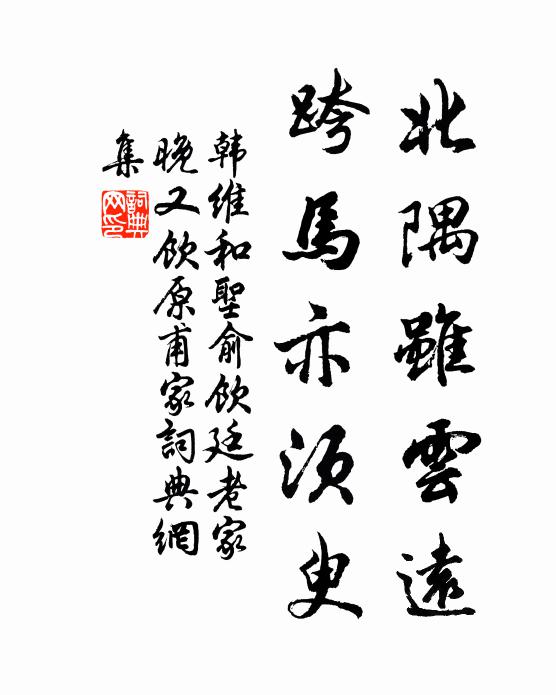 北隅雖雲遠
跨馬亦須臾
韩維和聖俞飲廷老家
晚又飲原甫家詞典網
集
詞典
网印